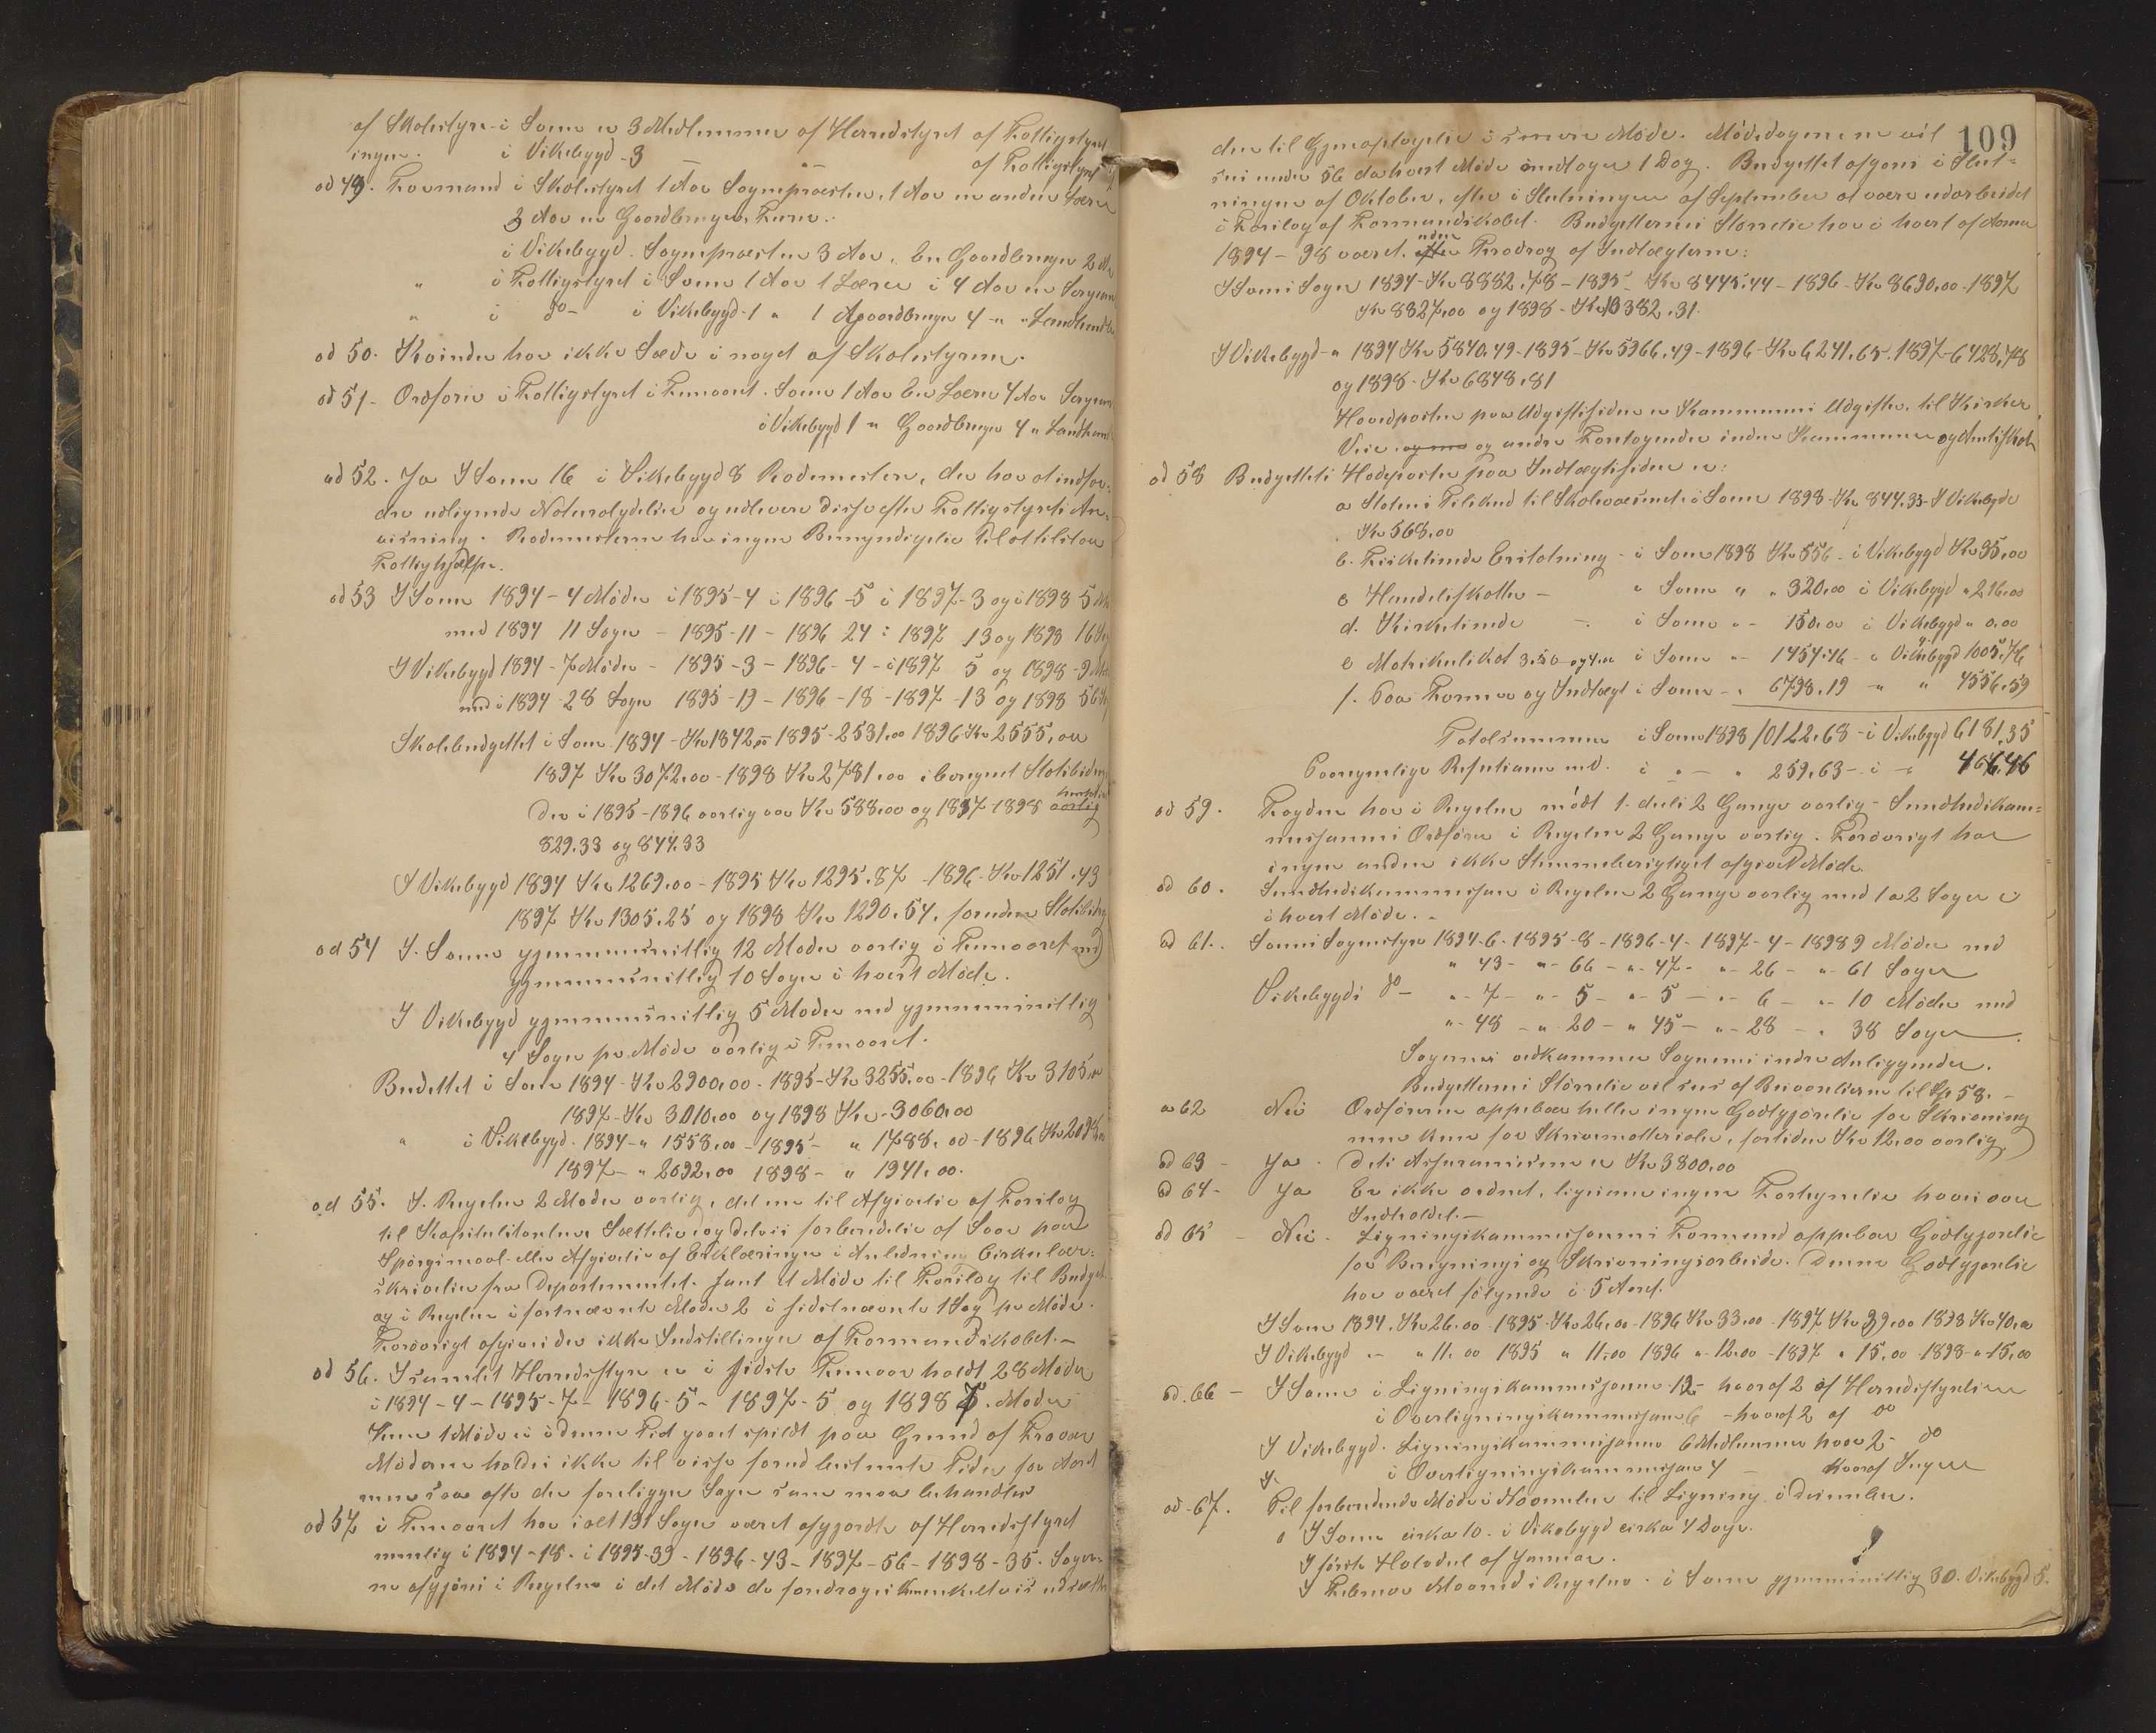 af Skolestyre i Søvne er 3 Medlemmer af Herredstyret af Fattigstyret
ingen. i Vikebygd - 3 — „ — af Fattigstyret
ad 49. Formand i Skolestyret 1 Aar Sognepræsten, 1 Aar en anden Lærer
3 Aar en Gaardbruger,
i Vikebygd. Sognepræsten 3 Aar. En Gaardbruger 2 Aar
„ i Fattigstyret i Søvne 1 Aar 1 Lærer i 4 Aar en
„ i do - i Vikebygd - 1 „ 1 Gaardbruger 4 - „ „ Landhandler
ad 50. Kvinder har ikke Sæde i noget af Skolestyrerne.
ad 51 - Ordfører i Fattigstyret i Femaaret. Søvne 1 Aar En Lærer 4 Aar
i Vikebygd 1 „ Gaardbruger 4 „ Landhandler
ad 52. Ja I Søvne 16 i Vikebygd 8 Rodemestere, der har at indfor-
dre udlignede Naturalydelser og udlevere disse efter Fattigstyrets An-
visning. Rodemesterne har ingen Bemyndigelse til at tilstaa
Fattighjælp.
ad 53 I Søvne 1894 - 4 Møder i 1895 - 4 i 1896 - 5 i 1897 - 3 og i 1898 5 Møder
med 1894 11 Sager - 1895 - 11 - 1896 24 : 1897 13 og 1898 16 Sager
I Vikebygd 1894 - 7 Møder - 1895 - 3 - 1896 - 4 - i 1897 5 og 1898 - 9 Møder
med i 1894 28 Sager 1895 - 19 - 1896 - 18 - 1897 - 13 og 1898 56 Sager
Skolebudgettet i Søvne 1894 - Kr 1842,00 1895 - 2531,00 1896 Kr 2555,00
1897 Kr 3072,00 - 1898 Kr 2781,00 iberegnet Statsbidrag
der i 1895 - 1896 aarlig var Kr 588,00 og 1897 - 1898 aarlig
829.33 og 844.33
I Vikebygd 1894 Kr 1269,00 - 1895 Kr 1295.87 - 1896 - Kr 1251.43
1897 Kr 1305.25 og 1898 Kr 1290.54, foruden Statsbidrag
ad 54 I Søvne gjennemsnitlig 12 Møder aarlig i Femaaret med
gjennemsnitlig 10 Sager i hvert Møde.
I Vikebygd gjennemsnitlig 5 Møder med gjennemsnitlig
4 Sager pr Møde aarlig i Femaaret.
Budgettet i Søvne 1894 - Kr 2900,00 - 1895 - Kr 3255,00 - 1896 Kr 3105,00
1897 - Kr 3010,00 og 1898 Kr - 3060,00
„ i Vikebygd - 1894 - „ 1558,00 - 1895 - „ 1788,00 - 1896 Kr
1897 - „ 2092,00 1898 - „ 1941,00.
ad 55. I Regelen 2 Møder aarlig, det ene til Afgivelse af Forslag
til Kapitalstakstens Sættelse og delvis forberedelse af Svar paa
Spørgsmaal eller Afgivelse af Erklæringer i Anledning Cirkulær-
skrivelser fra Departementet. Samt et Møde til Forslag til Budget
og i Regelen i førstnævnte Møde 2 i sidstnævnte 1 Sag pr Møde.
Forøvrigt afgives der ikke Indstillinger af Formandskabet. —
ad 56. I samlet Herredsstyre er i sidste Femaar holdt 28 Møder
i 1894 - 4 - 1895 - 7 - 1896 - 5 - 1897 - 5 og 1898 7. Møder
Kun 1 Møde er i denne Tid gaaet spildt paa Grund af Fravær
Møderne holdes ikke til visse forud bestemte Tider for Aaret
men saa ofte der foreligger Sager som maa behandles
ad 57 i Femaaret har i alt 191 Sager været afgjordte af Herredsstyret
nemlig i 1894 - 18 - i 1895 - 39 - 1896 - 43 - 1897 - 56 - 1898 - 35. Sager-
ne afgjøres i Regelen i det Møde de foredrages kun enkeltvis udsættes
109
den til Gjenoptagelse i senere Møde. Mødedagenene vil
sees under 56 da hvert Møde medtager 1 Dag. Budgettet afgjøres i Slut-
ningen af Oktober, efter i Slutningen af September at være udarbeidet
i Forslag af Formandskabet. Budgetternes Størrelse har i hvert af Aarene
1894 - 98 været. uden Fradrag af Indtægterne:
I Søvne Sogn 1894 - Kr 8882.78 - 1895 - Kr 8445.44 - 1896 - Kr 8690,00 - 1897
Kr 8827,00 og 1898 - Kr 10382.31.
I Vikebygd - „ 1894 Kr 5840.49 - 1895 - Kr 5966.49 - 1896 - Kr 6241.65. 1897 - 6428.78
og 1898 - Kr 6848.81
Hovedposter paa Udgiftssiden er Kommunens Udgifter, til Kirker
Veie og andre Foretagender inden Kommunen og Amtsskat
ad 58 Budgettets Hovedposter paa Indtægtssiden er:
a Statens Tilskud til Skolevæsenet i Søvne 1898 - Kr 844.33 - I Vikebygd
Kr 568,00
b. Erstatning - i Søvne 1898 Kr 556 - i Vikebygd Kr 95,00
c Handelsskatter - „ Søvne „ „ 320,00 i Vikebygd „ 216,00
d. Kirkeliende - i Søvne „ - 150,00 i Vikebygd „ 0.00
e Matrikulskat 3.50 og 4.00 i Søvne „ - 1454.76 - i Vikebygd 1005.76
f. Paa Formue og Indtægt i Søvne - „ 6798.19 - „ „ 4556.59
Totalsummen i Søvne 1898 10122.68 - i Vikebygd 6181.35
Paaregnelige Restancer med. i „ — „ 259.63 - i - „ 464.46
ad 59. Fogden har i Regelen mødt 1 - dels 2 Gange aarlig - Sundhedskom-
missionens Ordfører i Regelen 2 Gange aarlig. Forøvrigt har
ingen anden ikke Stemmeberigtiget afgivet Møde.
ad 60. Sundhedskommissionen i Regelen 2 Gange aarlig med 1 a 2 Sager
i hvert Møde. -
ad 61. Søvne Sognestyre 1894 - 6 - 1895 - 8 - 1896 - 4 - 1897 - 4 - 1898 9 Møder med
„ 43 - „ - 66 - „ - 47 - „ - 26 - „ - 61 Sager
Vikebygds do - „ - 7 - „ - 5 - „ - 5 - „ - 6 - „ - 10 Møder med
„ - 48 - „ - 20 - „ 45 - „ - 28 - „ 38 Sager.
Sagerne vedkommer Sognenes indre Anliggender.
Budgetternes Størrelse vil sees af Besvarelserne til Sp 58. -
a 62 Nei Ordførerne oppebær heller ingen Godtgjørelse for Skrivning
men kun for Skrivematerialer, fortiden Kr 12,00 aarlig
ad 63 - Ja. Dets Assurancesum er Kr 3800,00
ad 64 - Ja Er ikke ordnet, ligesom ingen Fortegnelse haves over
Indholdet. —
ad 65 - Nei - Ligningskommissionens Formand oppebær Godtgjørelse
for Beregnings og Skrivningsarbeide. Denne Godtgjørelse
har været følgende i 5 Aaret.
I Søvne 1894. Kr 26,00 1895 - Kr 26,00 - 1896 Kr 33,00 - 1897 Kr 39,00 1898 Kr 40,00
I Vikebygd - „ 11,00 1895 „ 11,00 1896 „ 12,00 - 1897 „ 15,00 - 1898 - „ 15,00
ad. 66 - I Søvne i Ligningskommissionen 12 - hvoraf 2 af Herredsstyrelsen
i Overligningskommissionen 6 - hvoraf 2 af do
I Vikebygd. Ligningskommissionen 6 Medlemmer hvor 2 - do
i Overligningskommissionen 4 - hvoraf Ingen
ad - 67. Til forberedende Møde i November til Ligning i December.
I Søvne cirka 10 - i Vikebygd cirka 4 Dage.
I første Halvdel af Januar.
I Februar Maaned i Regelen. i Søvne gjennemsnitlig 30. Vikebygd 5.